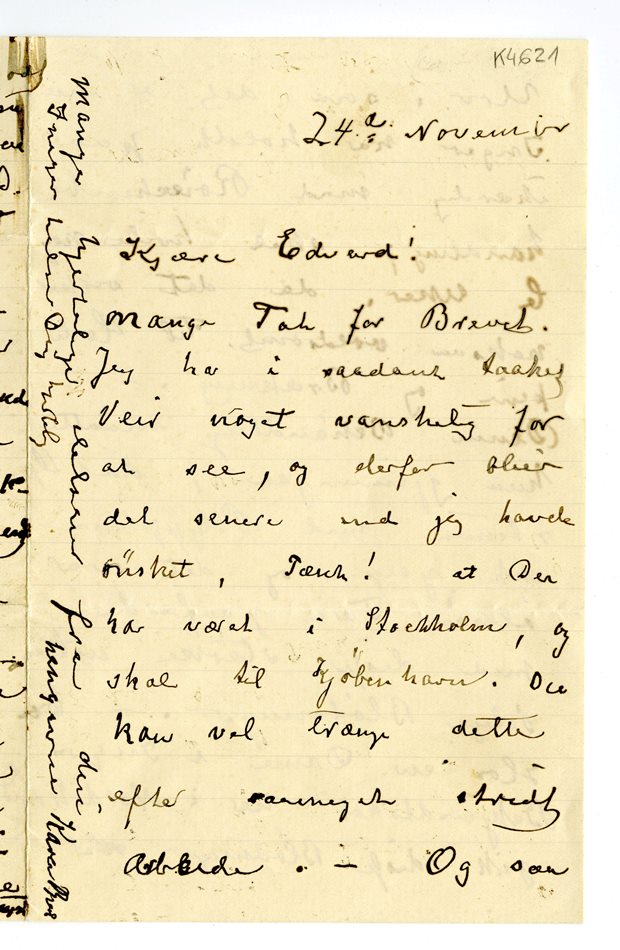 K4621
24de November
Kjære Edvard!
Mange Tak for Brevet.
Jeg har i saadant taaket
Veir noget vanskelig for
at see, og derfor bliver
det senere end jeg havde
ønsket, Tænk! at Du
har været i Stockholm, og
skal til Kjøbenhavn. Du
kan vel trænge dette
efter saameget stridt
Arbeide. — Og saa
Mange hjertelige Hilsener fra din
hengivne Karen
Inger hilser Dig hjertelig